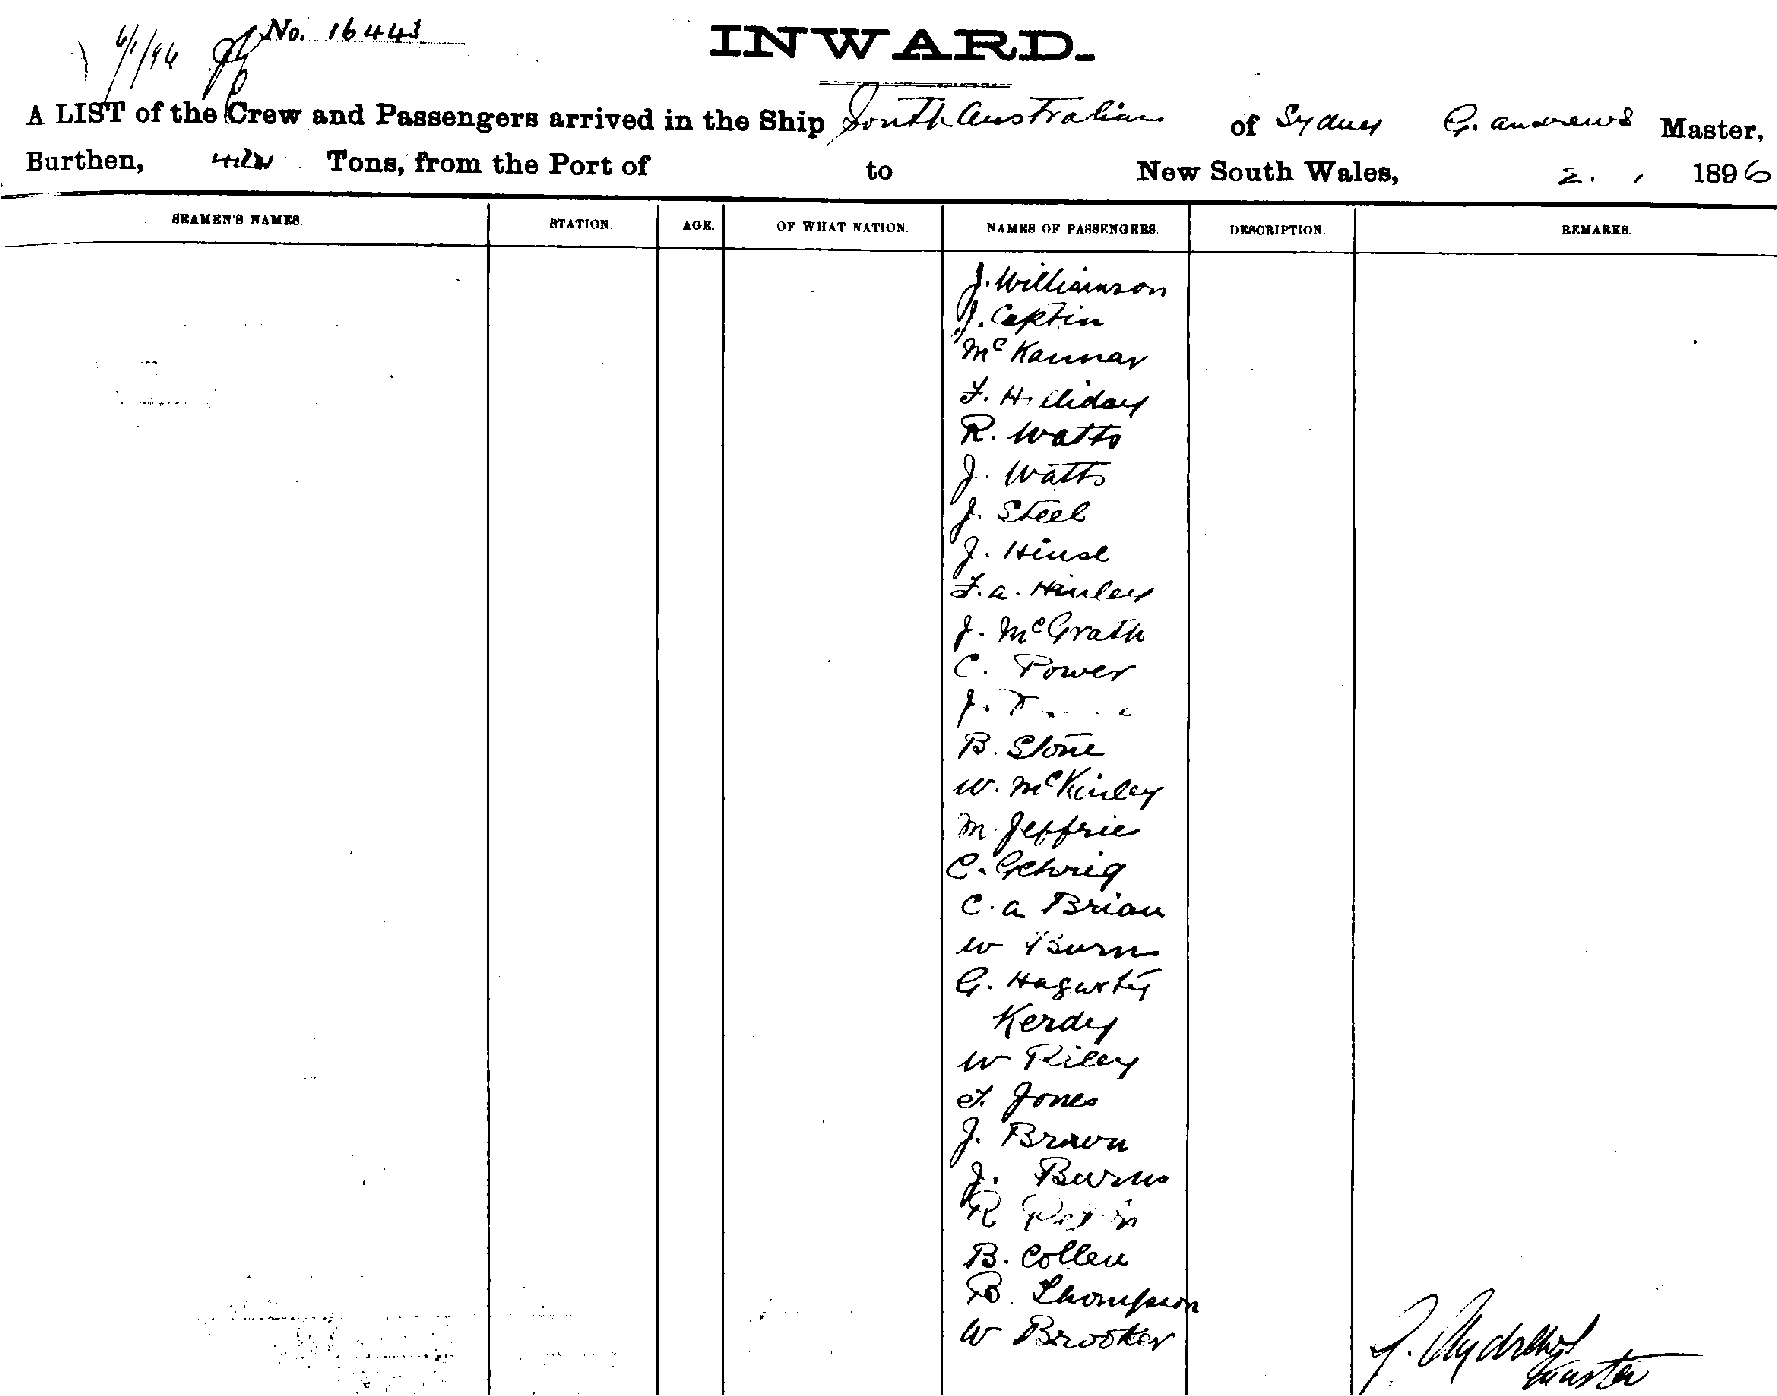 6/1/96 No. 16443
INWARD.
A LIST of the Crew and Passengers arrived in the Ship South Australian of Sydney G. Andrews Master,
Burthen, Tons, from the Port of to New South Wales, 2. , 1896
SEAMEN'S NAMES. STATION. AGE. OF WHAT NATION. NAMES OF PASSENGERS. DESCRIPTION. REMARKS.
J. Williamson
J. Captin
Mc Kannar
F. Holliday
R. Watts
J. Watts
J. Steel
J.
F. A.
J. McGrath
C. Power
J.
B. Stone
W. McKinley
M. Jeffries
C. Gehrig
C. A Brian
W Burns
G. Hagarty
Kerdy
W Riley
T. Jones
J. Brown
J. Burns
R
B. Collen
B. Thompson
W Brooker
J. Andrews
Master